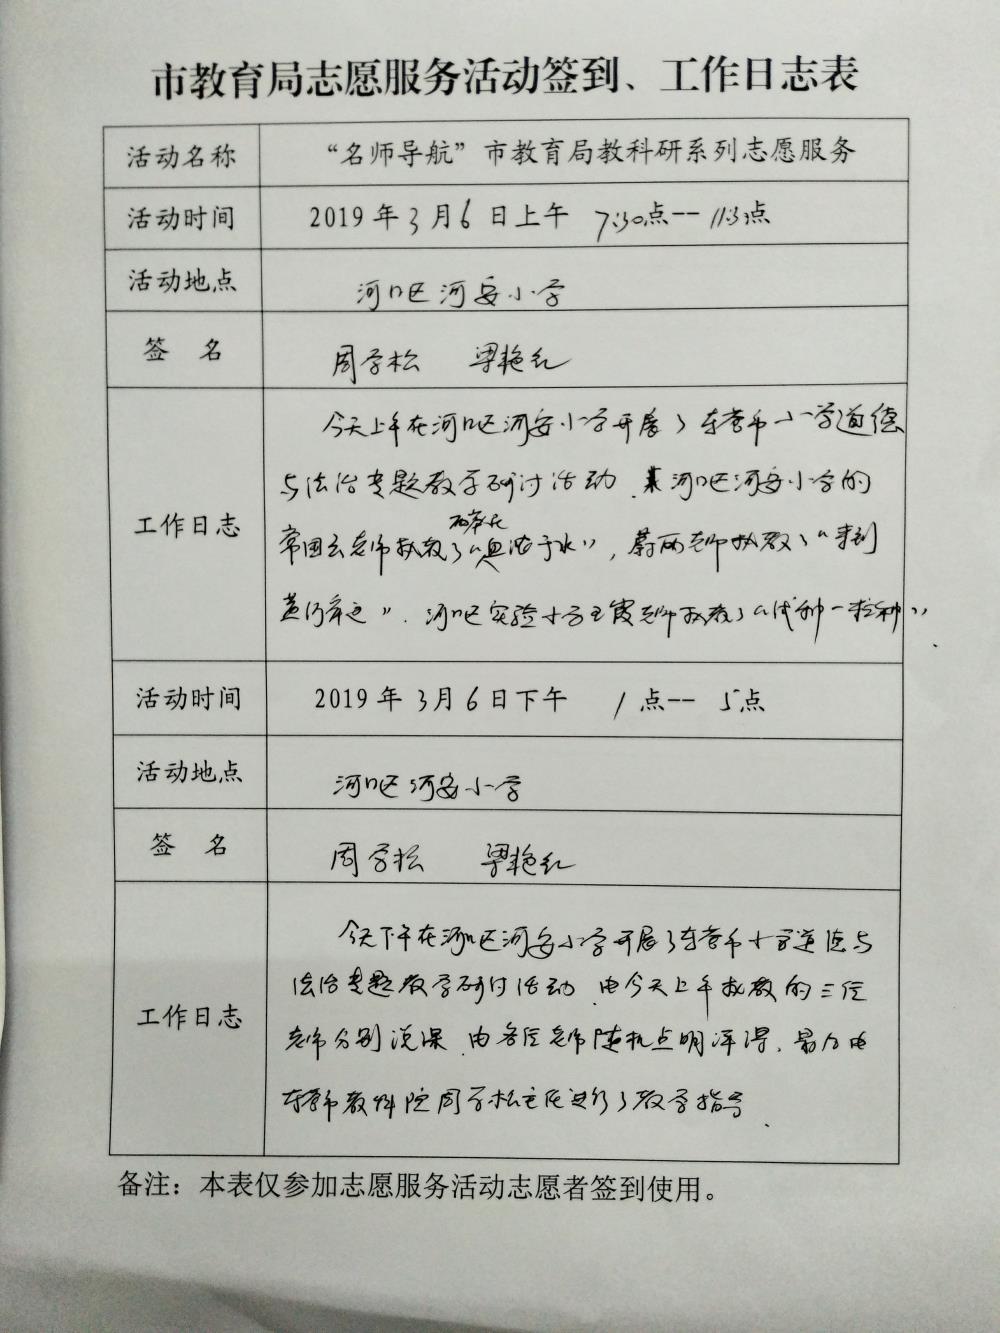 市教育局志愿服务活动签到、工作日志表
活动名称 “名师导航”市教育局教科研系列志愿服务
活动时间 2019年3月6日上午 7:30点--11:30点
活动地点 河口区河安小学
签 名 周学松 梁艳红
今天上午在河口区河安小学开展了东营市小学道德
与法治专题教学研讨活动.河口区河安小学的
工作日志
常国云老师执教了“浓于水”,蔚丽老师执教了“来到
黄河岸边”.河口区实验小学王霞老师执教了“我种一粒种”
.
活动时间 2019年3月6日下午 1点--5点
活动地点 河口区河安小学
签 名 周学松 梁艳红
今天下午在河口区河安小学开展了东营市小学道德与
法治专题教学研讨活动 由今天上午执教的三位
工作日志
老师分别说课.由各位老师随机点明评课,最后由
东营市教科院周学松主任进行了教学指导.
备注：本表仅参加志愿服务活动志愿者签到使用。